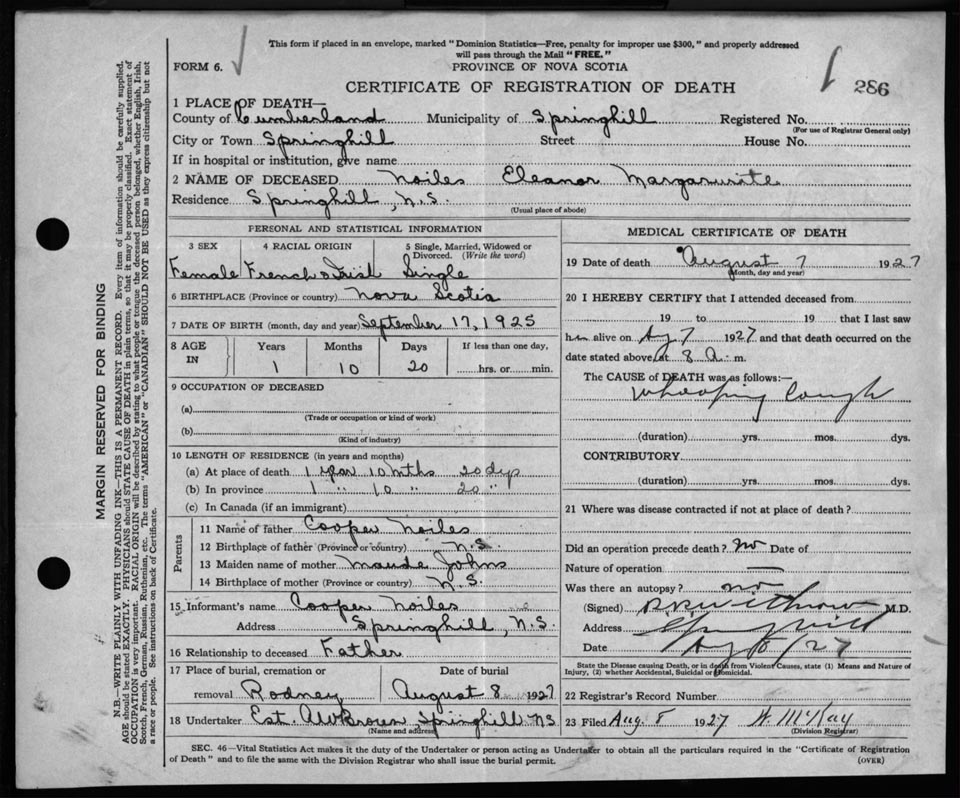 This form if placed in an envelope, marked "Dominion Statistics—Free, penalty for improper use $300," and properly addressed
will pass through the Mail "FREE."
FORM 6.
PROVINCE OF NOVA SCOTIA
CERTIFICATE OF REGISTRATION OF DEATH
286
1 PLACE OF DEATH—
County of Cumberland Municipality of Springhill Registered No.
(For use of Registrar General only)
City or Town Springhill Street House No.
If in hospital or institution, give name
2 NAME OF DECEASED Noiles Eleanor Margarurite
Residence Springhill, N.S.
(Usual place of abode)
PERSONAL AND STATISTICAL INFORMATION
3 SEX 4 RACIAL ORIGIN 5 Single, Married, Widowed or Divorced. (Write the word)
Female French & Irish Single
6 BIRTHPLACE (Province or country) Nova Scotia
7 DATE OF BIRTH (month, day and year) September 17, 1925
8 AGE IN Years Months Days If less than one day,
1 10 20 hrs. or min.
9 OCCUPATION OF DECEASED
(a)
(Trade or occupation or kind of work)
(b)
(Kind of industry)
10 LENGTH OF RESIDENCE (in years and months)
(a) At place of death 1 year 10 mths 20 dys
(b) In province 1 " 10 " 20 "
(c) In Canada (if an immigrant)
Parents
11 Name of father Cooper Noiles
12 Birthplace of father (Province or country) N.S.
13 Maiden name of mother Maude Johns
14 Birthplace of mother (Province or country) N.S.
15 Informant's name Cooper Noiles
Address Springhill, N.S.
16 Relationship to deceased Father
17 Place of burial, cremation or removal Rodney
Date of burial August 8 1927
18 Undertaker Est. Springhill NS
(Name and address)
MEDICAL CERTIFICATE OF DEATH
19 Date of death August 7 1927
(Month, day and year)
20 I HEREBY CERTIFY that I attended deceased from
19 to 19 that I last saw
h alive on Ag 7 1927 and that death occurred on the
date stated above, at 8 a. m.
The CAUSE of DEATH was as follows:—
Whooping Cough
(duration) yrs. mos. dys.
CONTRIBUTORY
(duration) yrs. mos. dys.
21 Where was disease contracted if not at place of death?
Did an operation precede death? No Date of
Nature of operation —
Was there an autopsy? no
(Signed) M.D.
Address Springhill
Date Ag 8/27
State the Disease causing Death, or in death from Violent Causes, state (1) Means and Nature of
Injury, (2) whether Accidental, Suicidal or Homicidal.
22 Registrar's Record Number
23 Filed Aug. 8 1927 McKay
(Division Registrar)
SEC. 46—Vital Statistics Act makes it the duty of the Undertaker or person acting as Undertaker to obtain all the particulars required in the "Certificate of Registration
of Death" and to file the same with the Division Registrar who shall issue the burial permit.
(OVER)
MARGIN RESERVED FOR BINDING
N.B.—WRITE PLAINLY WITH UNFADING INK—THIS IS A PERMANENT RECORD. Every item of information should be carefully supplied.
AGE should be stated EXACTLY. PHYSICIANS should STATE CAUSE OF DEATH in plain terms, so that it may be properly classified. Exact statement of
OCCUPATION is very important. RACIAL ORIGIN will be described by stating to what people or tongue the deceased person belonged, whether English, Irish,
Scotch, French, German, Russian, Ruthenian, etc. The terms "AMERICAN" or "CANADIAN" SHOULD NOT BE USED as they express citizenship but not
a race or people. See instructions on back of Certificate.